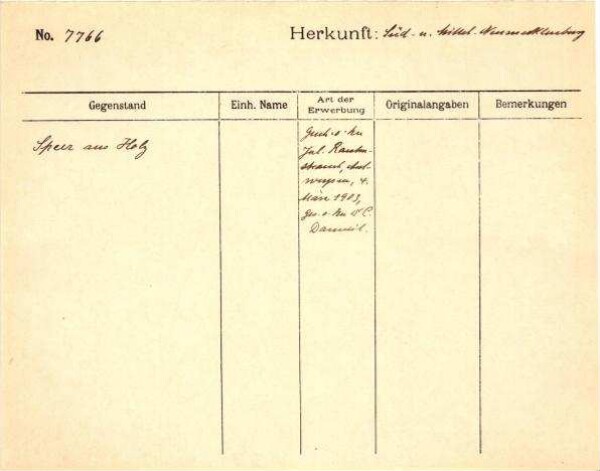 No. 7766
Herkunft: Süd- u. Mittel-Neumecklenburg
Gegenstand
Einh. Name
Art der Erwerbung
Originalangaben
Bemerkungen
Speer aus Holz
Gesch. v. Hn
Jul. Rauten-
strauch, Ant-
werpen, 4.
März 1903,
ges. v. Hn
Damm